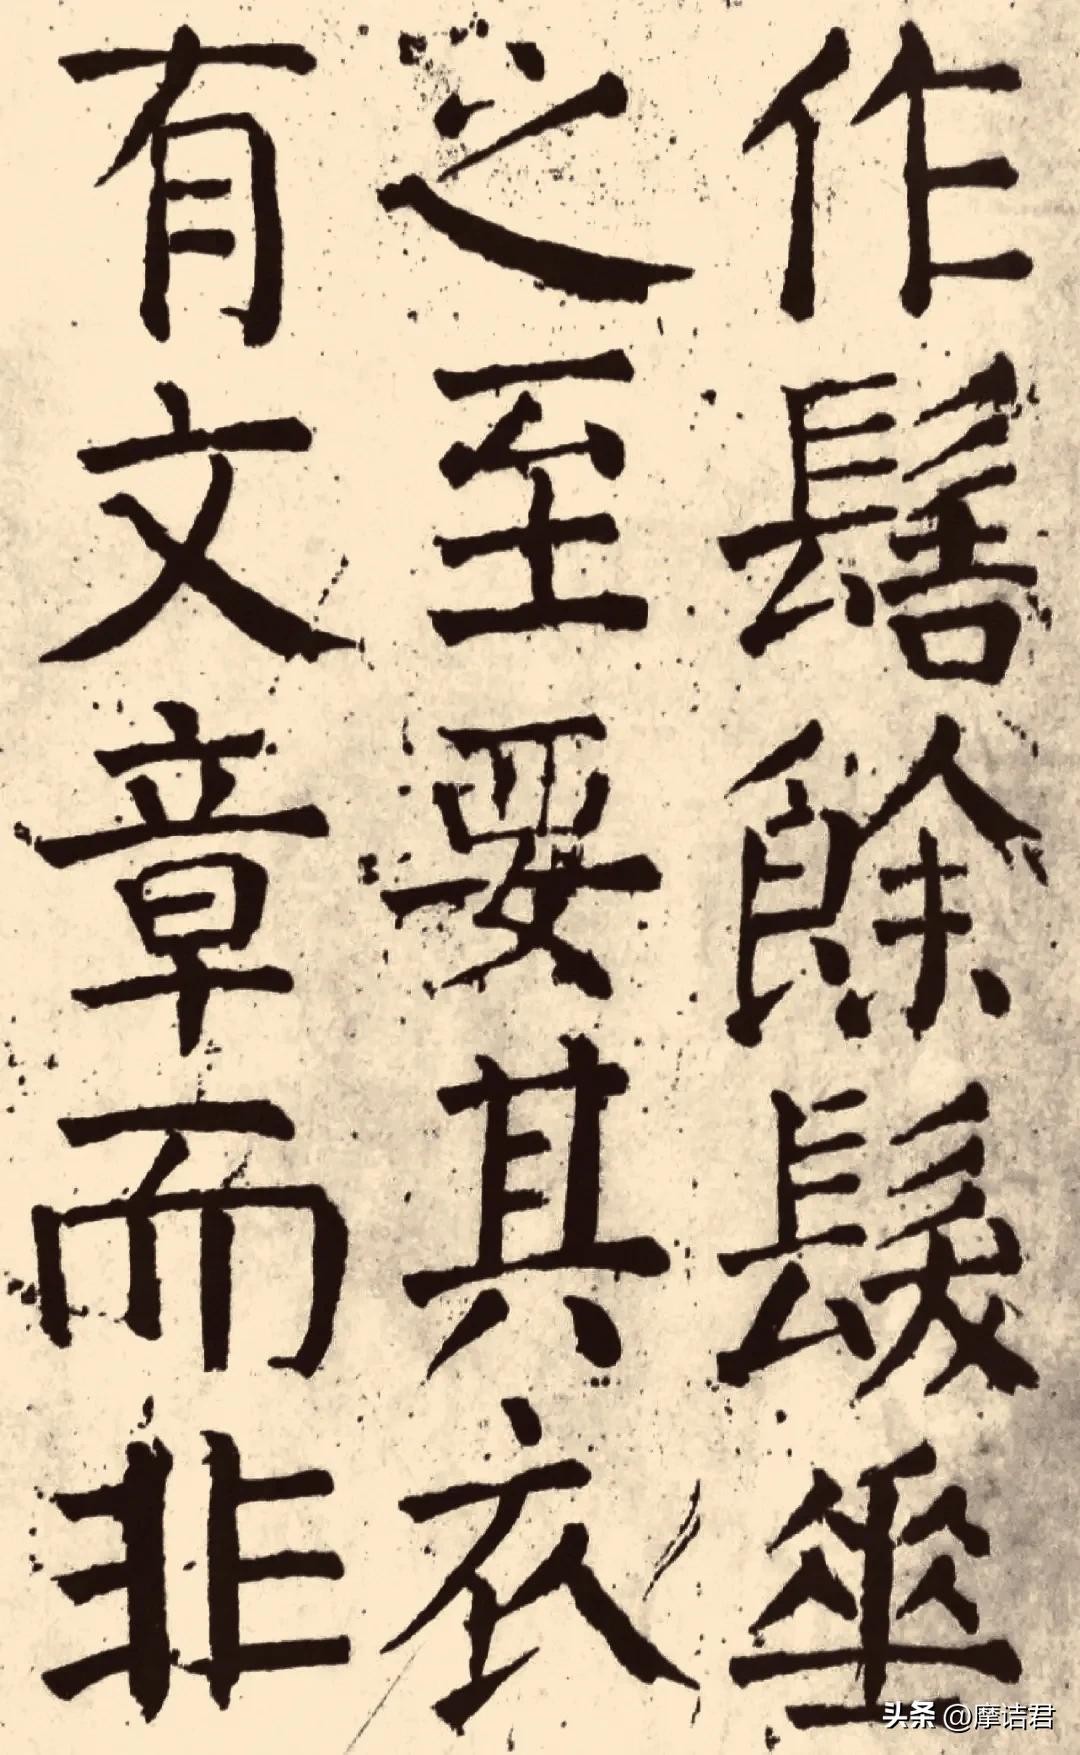 作髻餘髮垂
之至要其衣
有文章而非
头条 @摩诘君